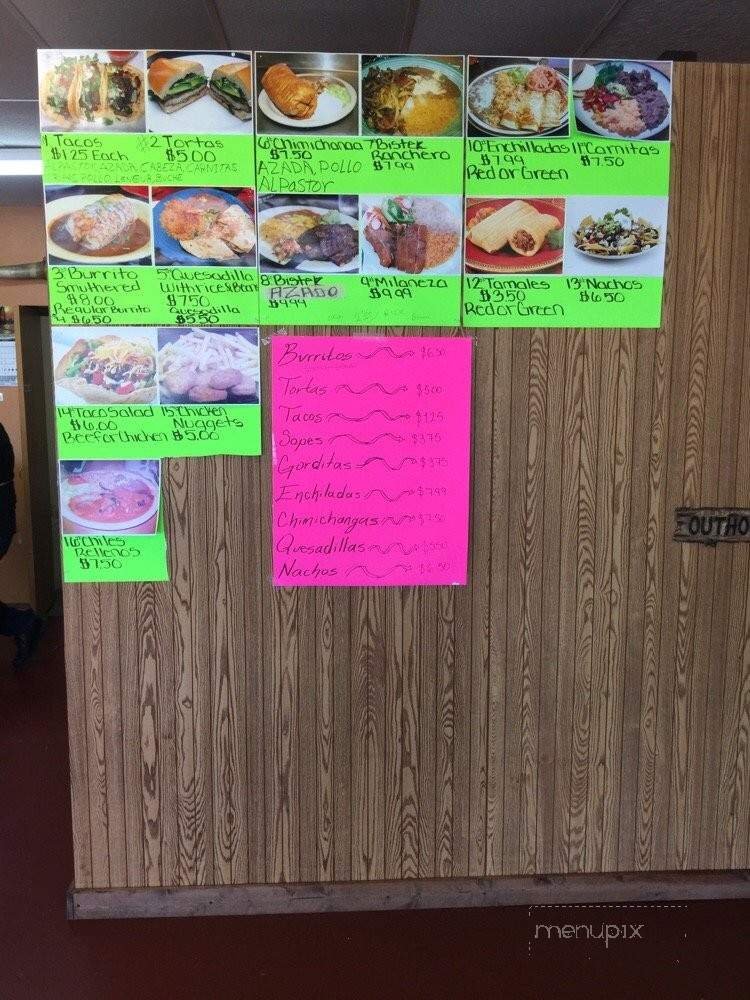 1 Tacos
$1.25 Each
#2 Tortas
$5.00
AZADA, CABEZA, CARNITAS,
POLLO, LENGUA, BUCHE
6# Chimichanga
$7.50
AZADA, POLLO
ALPastor
7# Bistek
Ranchero
$7.99
10# Enchilladas
$7.99
Red or Green
11# Carnitas
$7.50
3# Burrito
Smuthered
$8.00
Regular Burrito
#4 $6.50
5# Quesadilla
With rice & Beans
$7.50
Quesadilla
$5.50
8# Bistek
AZADO
$9.99
9# Milaneza
$9.99
12# Tamales
$3.50
Red or Green
13# Nachos
$6.50
14# Taco Salad
$6.00
Beef or Chicken
15# Chicken
Nuggets
$5.00
16# Chiles
Rellenos
$7.50
Burritos $6.50
Tortas $5.00
Tacos $1.25
Sopes $3.75
Gorditas $3.75
Enchiladas $7.99
Chimichangas $7.50
Quesadillas $5.50
Nachos $6.50
OUTHO
menupix